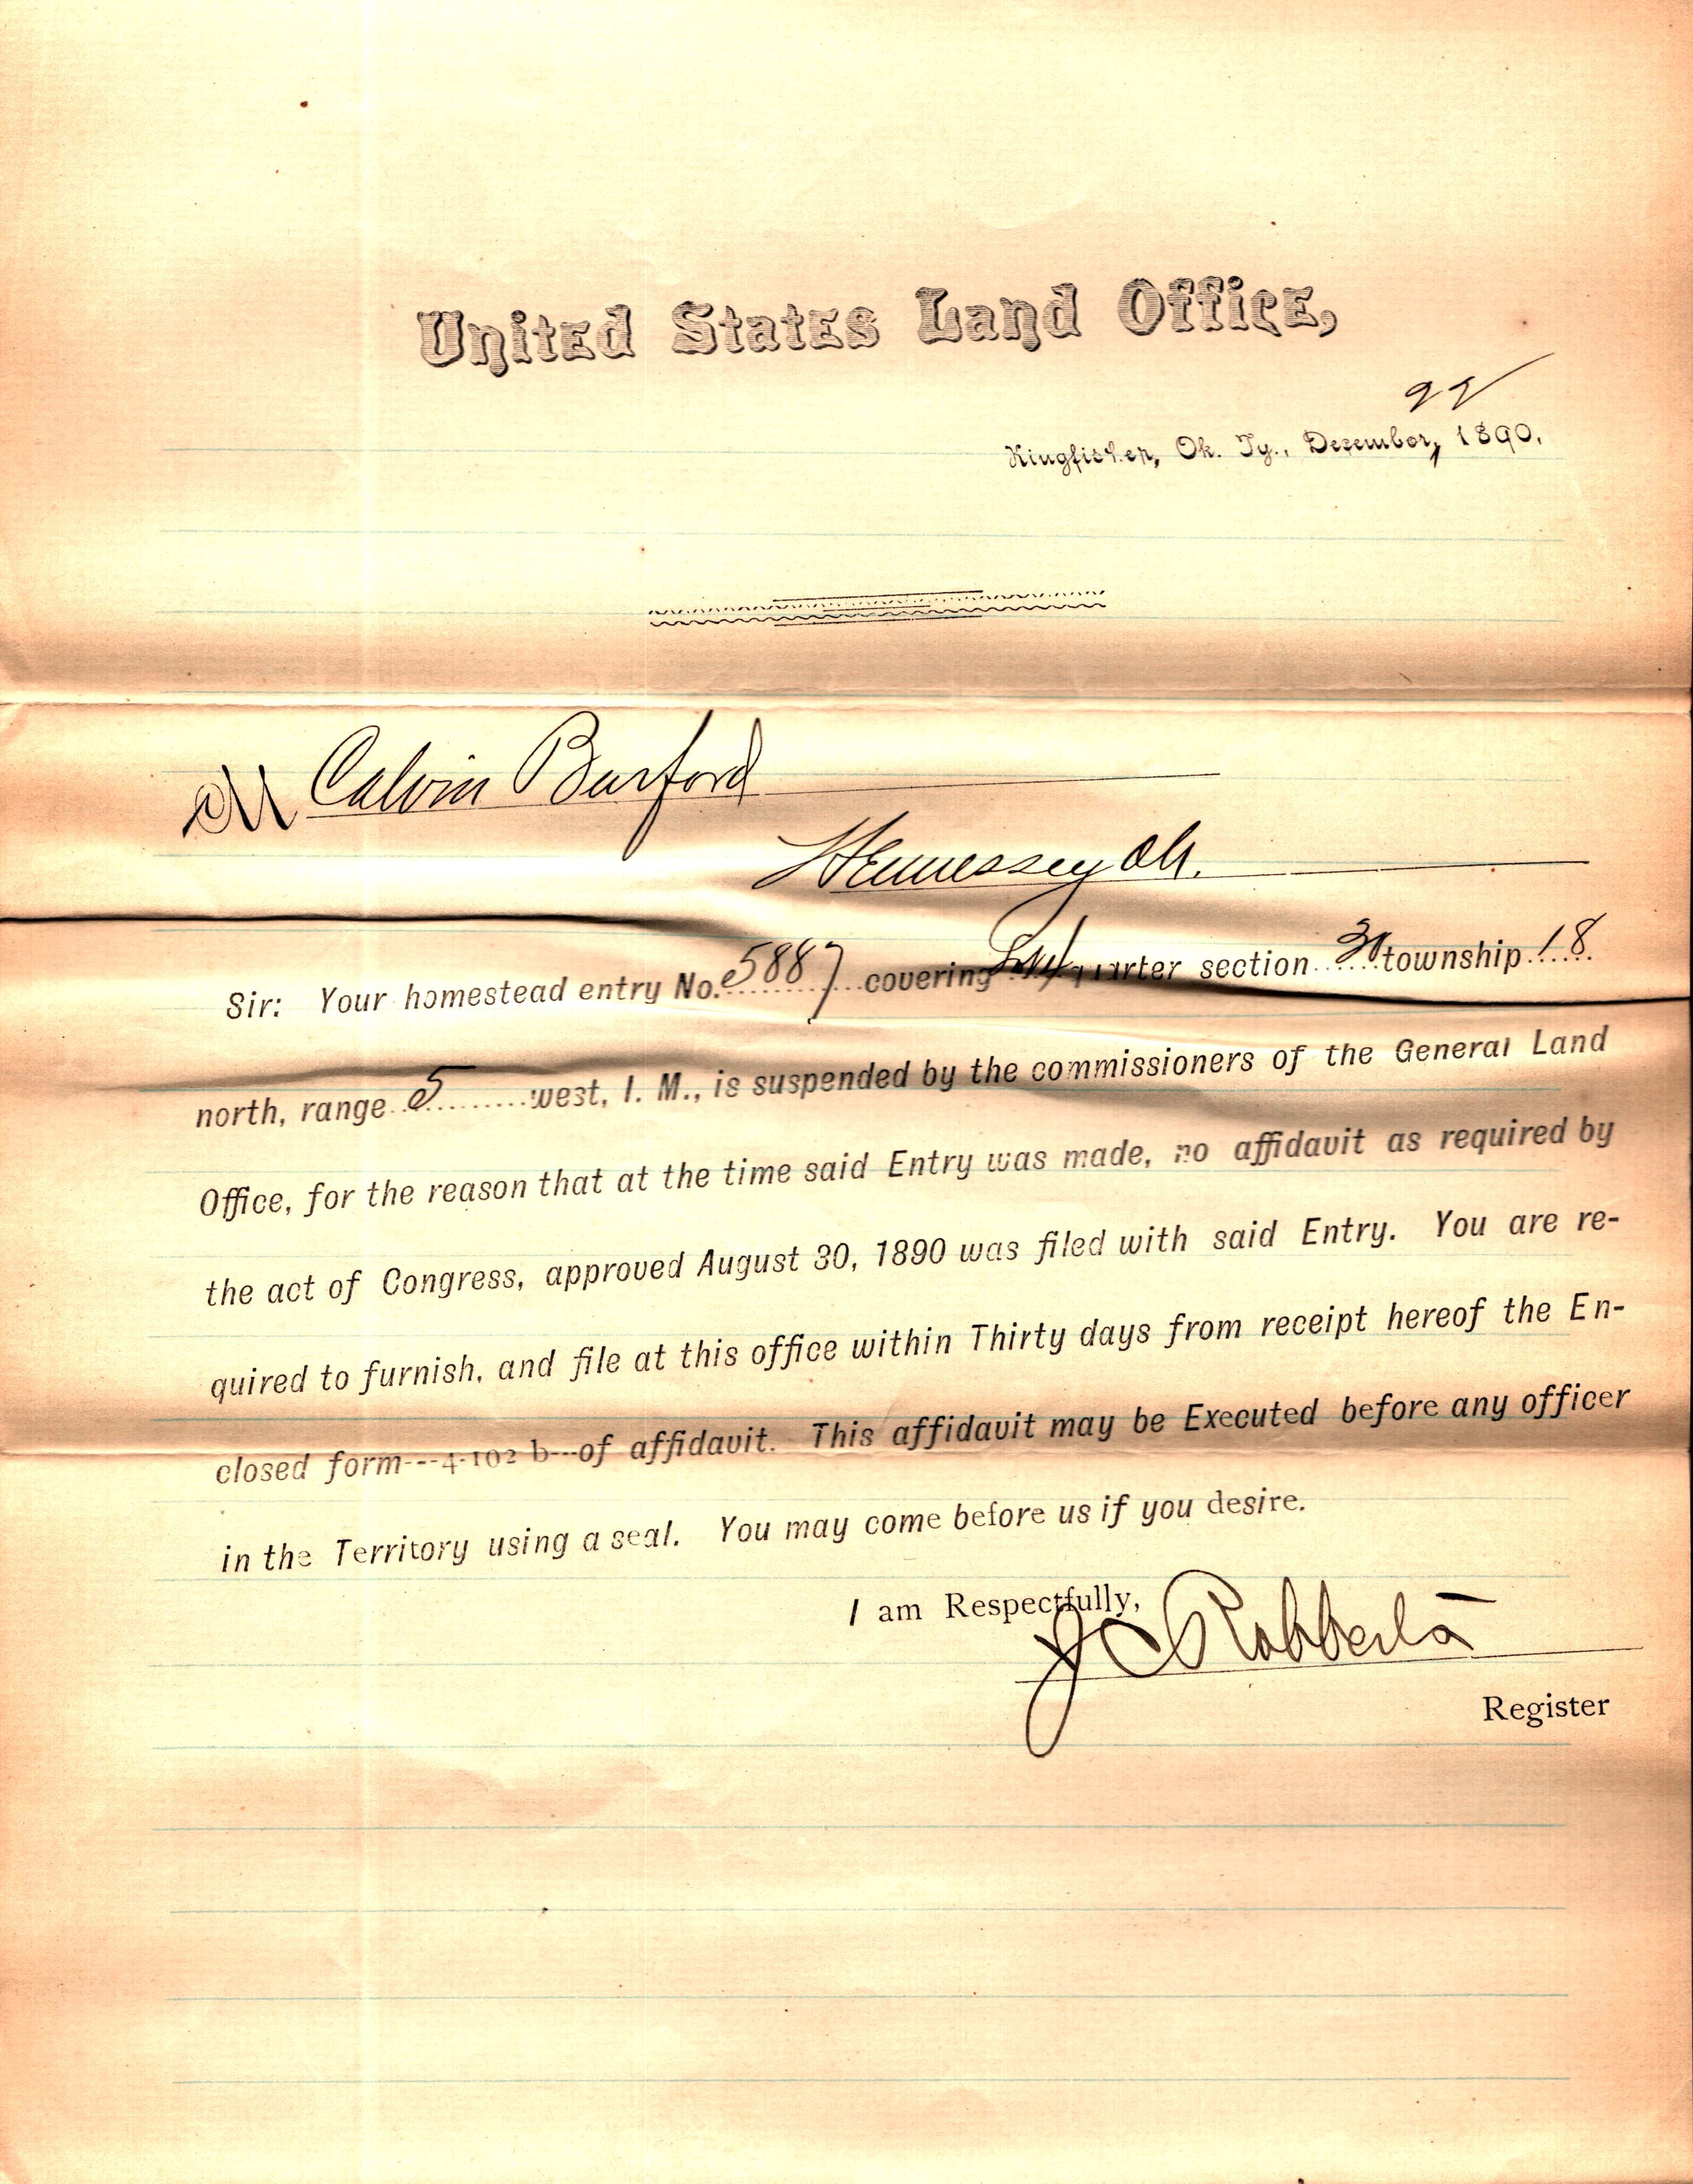 United States Land Office,
22
Kingfisher, Ok. Ty., December, 1890.
M Calvin Burford
Hennessey Ok.
Sir: Your homestead entry No. 5887 covering quarter section township 18
north, range 5 west, I. M., is suspended by the commissioners of the General Land
Office, for the reason that at the time said Entry was made, no affidavit as required by
the act of Congress, approved August 30, 1890 was filed with said Entry. You are re-
quired to furnish, and file at this office within Thirty days from receipt hereof the En-
closed form---4-102 b---of affidavit. This affidavit may be Executed before any officer
in the Territory using a seal. You may come before us if you desire.
I am Respectfully,
J C Robberts
Register